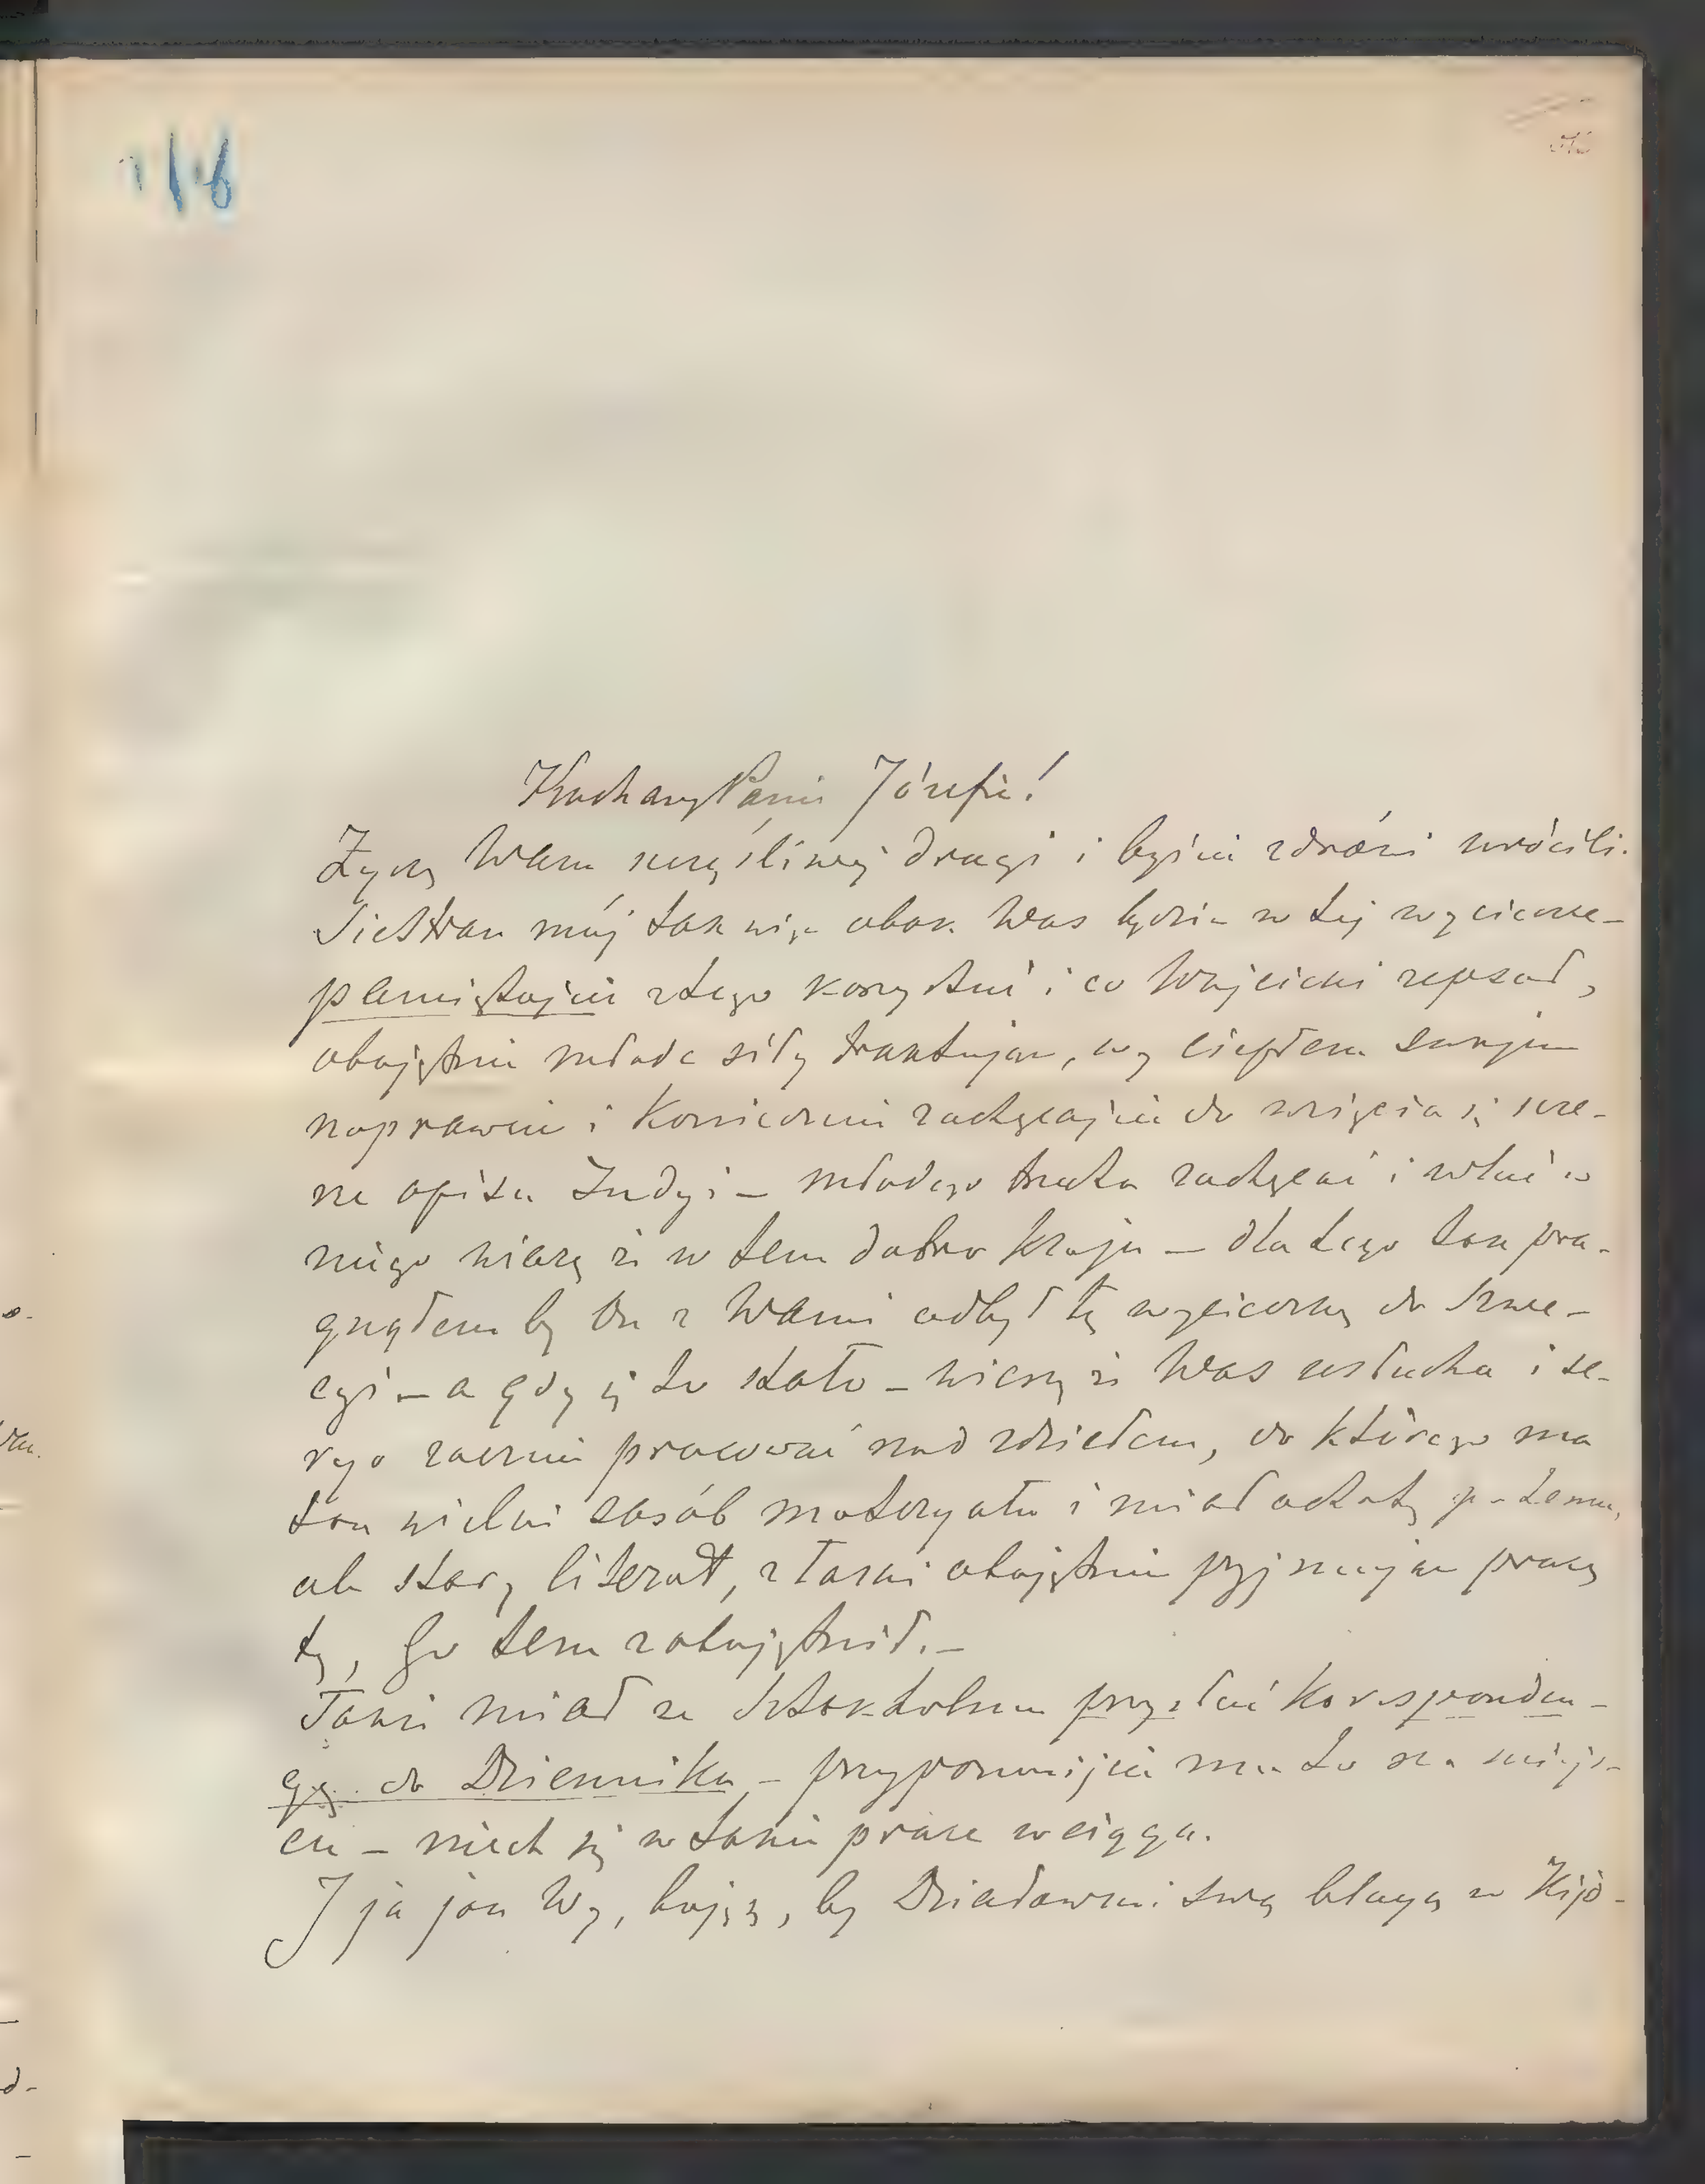 116
Kochany Panie Józefie!
Życzę Wam szczęśliwej drogi i byście zdrowi wrócili.
Siestrzan mój tak więc obok Was będzie w tej wycieczce –
pamiętajcie z tego korzystać i co Wójcicki zepsuł,
obojętnie młode siły traktując, wy ciepłem swojem
naprawcie i koniecznie zachęcajcie do wzięcia się szcze-
re opisu Indyi – młodego trzeba zachęcać i wlać w
niego wiarę że w tem dobro kraju – dla tego tak pra-
gnąłem by On z Wami odbył tę wycieczkę do Szwe-
cyi – a gdy się to stało – wierzę że Was usłucha i se-
ryo zacznie pracować nad dziełem, do którego ma
tak wielki zasób materyału i miał ochotę po temu,
ale stary literat, z łaski obojętnie przyjmując pracę
tę, Go tem zobojętnił. –
Także miał ze Sztokholmu przysłać korresponden-
cyę do Dziennika – przypomnijcie mu to na miejs-
cu – niech się w takie prace wciąga.
I ja jak Wy, boję się, by Działowski swą blagą w Kijo-